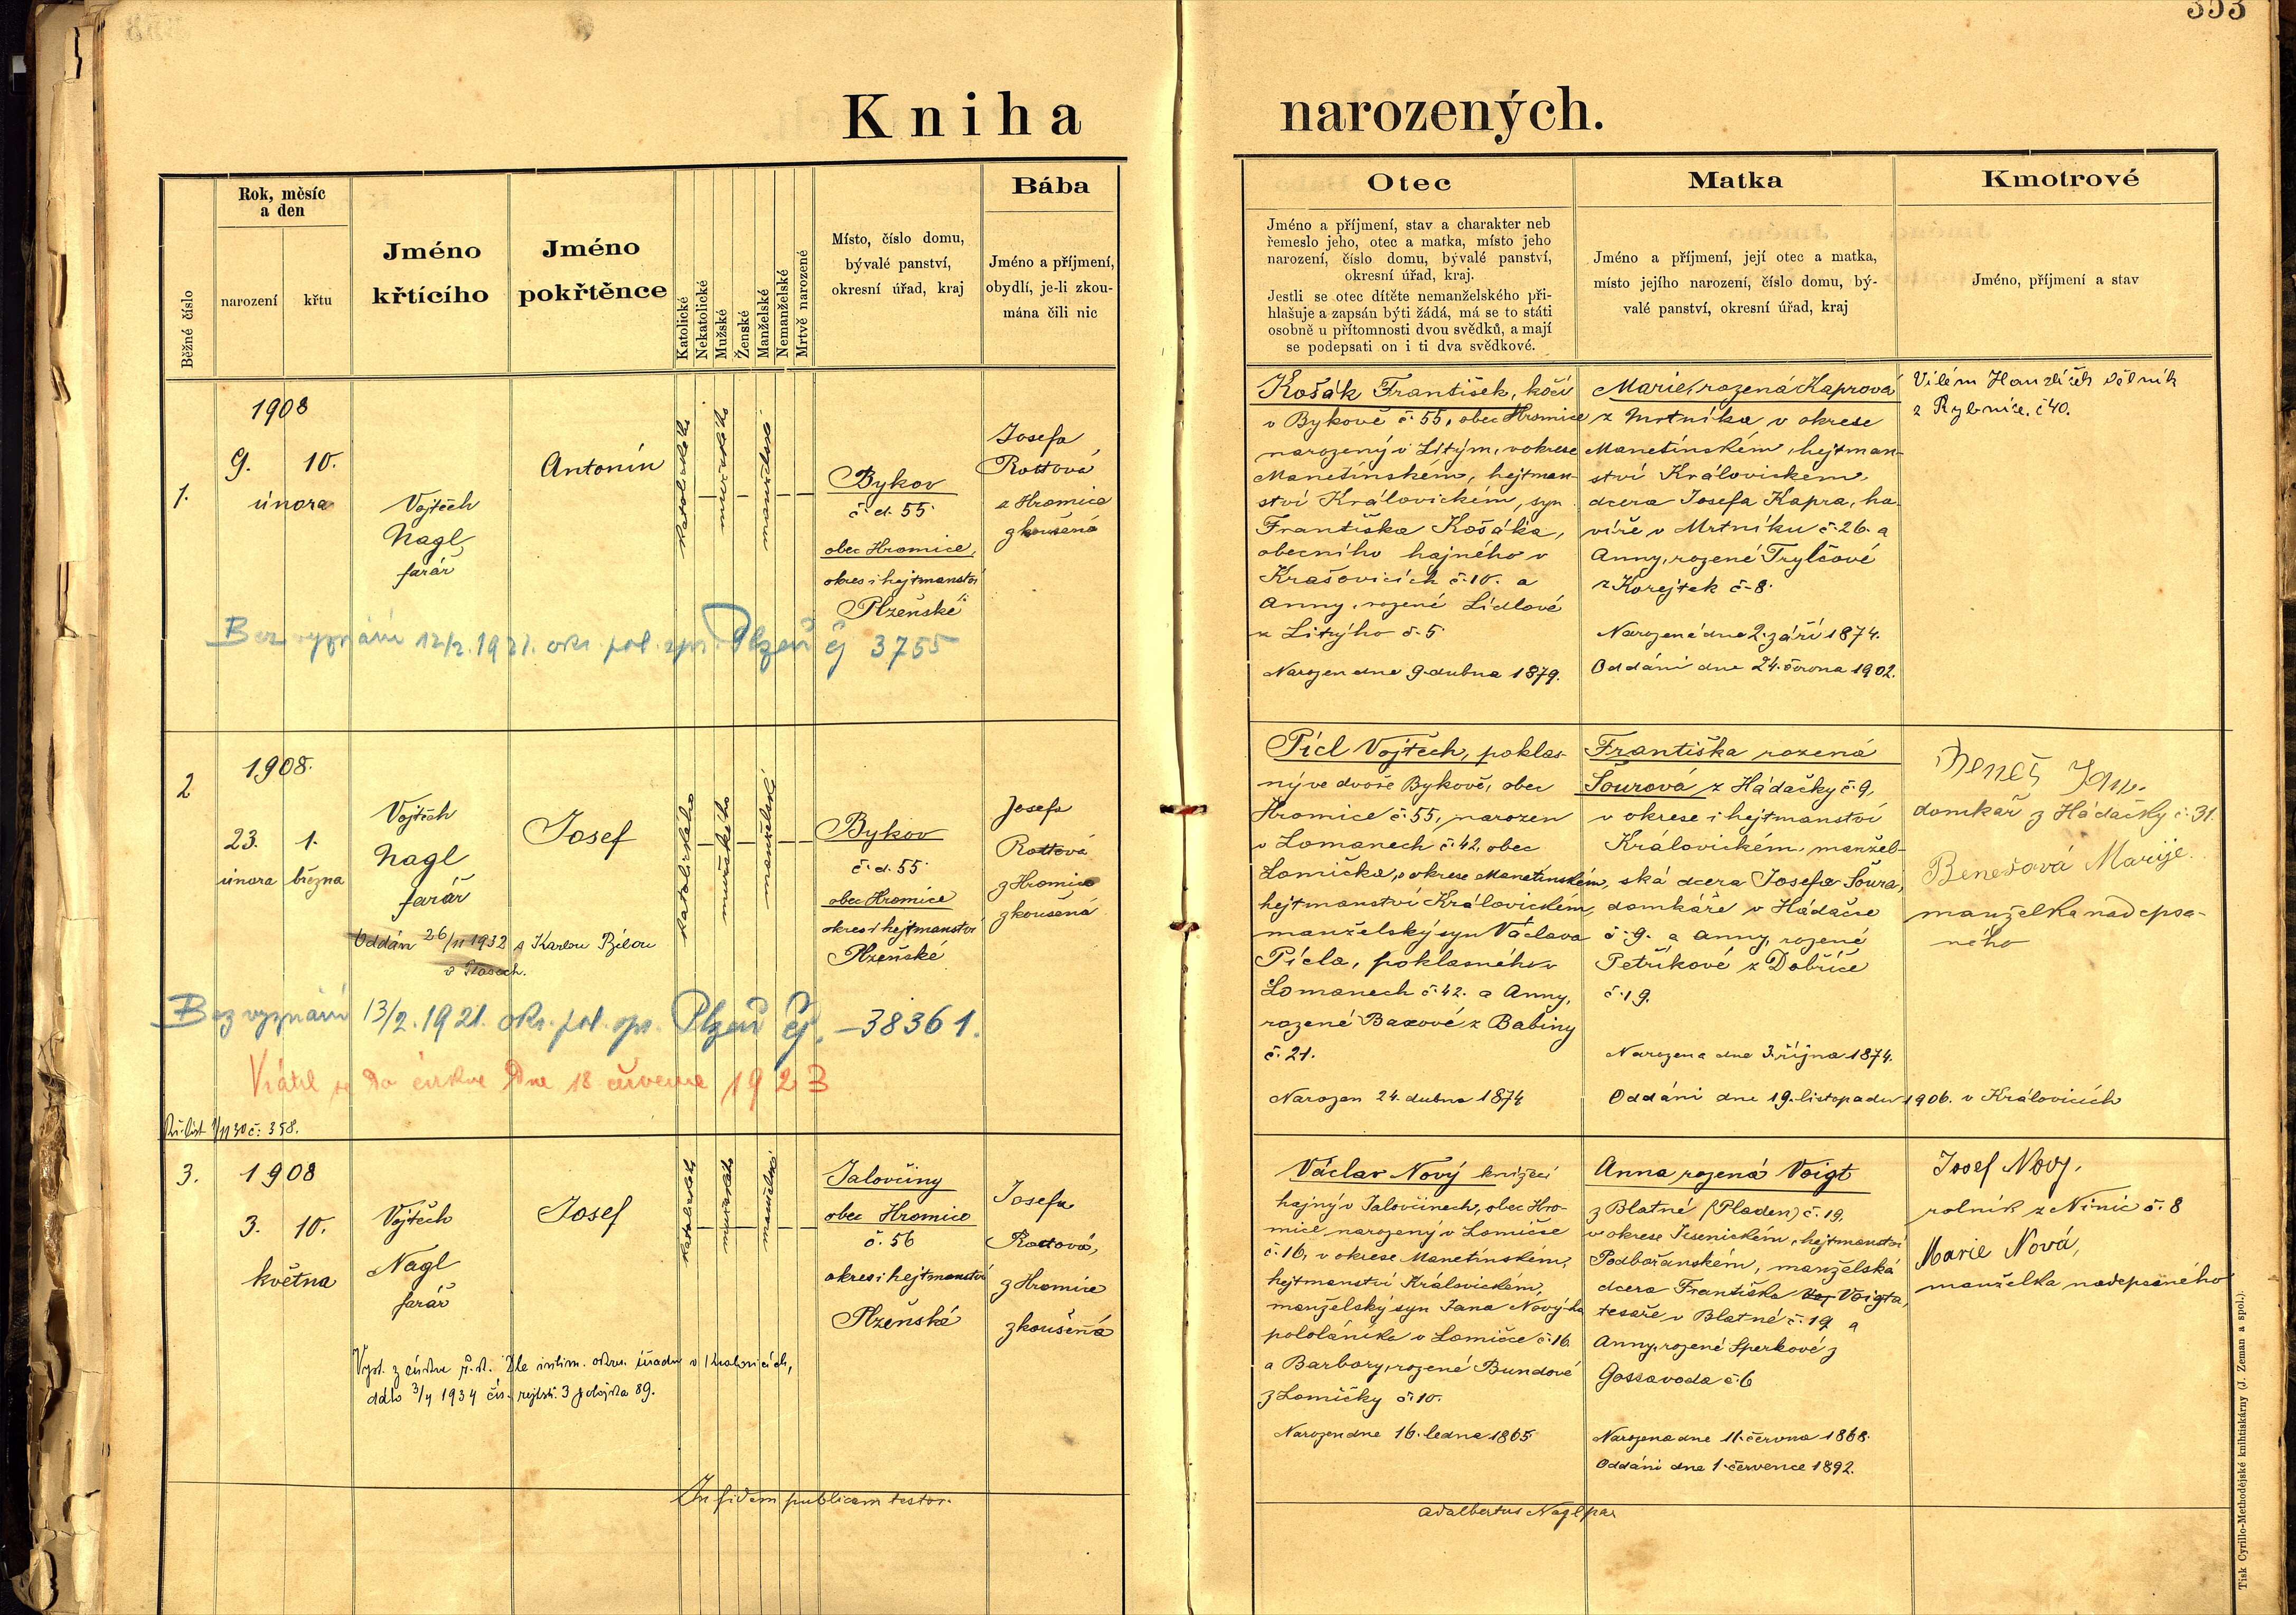 353
Kniha narozených.
Běžné číslo
Rok, měsíc
a den
narození
křtu
Jméno
křtícího
Jméno
pokřtěnce
Katolické
Nekatolické
Mužské
Ženské
Manželské
Nemanželské
Mrtvě narozené
Místo, číslo domu,
bývalé panství,
okresní úřad, kraj
Bába
Jméno a příjmení,
obydlí, je-li zkou-
mána čili nic
Otec
Jméno a příjmení, stav a charakter neb
řemeslo jeho, otec a matka, místo jeho
narození, číslo domu, bývalé panství,
okresní úřad, kraj.
Jestli se otec dítěte nemanželského při-
hlašuje a zapsán býti žádá, má se to státi
osobně u přítomnosti dvou svědků, a mají
se podepsati on i ti dva svědkové.
Matka
Jméno a příjmení, její otec a matka,
místo jejího narození, číslo domu, bý-
valé panství, okresní úřad, kraj
Kmotrové
Jméno, příjmení a stav
1.
1908
9. 10.
února
Vojtěch
Nagl,
farář
Antonín
katolického
mužského
manželské
Bykov
č. d. 55
obec Hromice,
okres i hejtmanství
Plzeňské
Josefa
Rottová
z Hromice
zkoušená
Bez vyznání 12/2. 1921. okr. pol. spr. Plzeň čj 3755
Košák František, kočí
v Bykově č. 55, obec Hromice
narozený v Litým, v okrese
Manetínském, hejtman-
ství Královickém, syn
Františka Košáka,
obecního hajného v
Krašovicích č. 10. a
Anny, rozené Lídlové
z Litýho č. 5
Narozen dne 9. dubna 1879.
Marie, rozená Kaprová
z Mrtníka v okrese
Manetínském, hejtman-
ství Královickém,
dcera Josefa Kapra, ha-
víře v Mrtníku č. 26. a
Anny, rozené Trylčové
z Korejtek č. 8.
Narozená dne 2. září 1874.
Oddáni dne 24. června 1902.
Vilém Hanzlíček dělník
z Rybnice. č 40.
2
1908.
23. 1.
února března
Vojtěch
Nagl
farář
Josef
katolického
mužského
manželské
Bykov
č. d. 55
obec Hromice
okres i hejtmanství
Plzeňské
Josefa
Rottová
z Hromice
zkoušená
Oddán 26/11 1932 s Karlou Bílou
v Plasech.
Bez vyznání 13/2. 1921. okr. pol. spr. Plzeň čj. – 38361.
Vrátil se do církve dne 18 července 1923
č: 358.
Pícl Vojtěch, poklas-
ný ve dvoře Bykově, obec
Hromice č. 55, narozen
v Lomanech č. 42, obec
Lomička, v okrese Manetínském,
hejtmanství Královickém,
manželský syn Václava
Pícla, poklasného v
Lomanech č. 42. a Anny,
rozené Baxové z Babiny
č. 21.
Narozen 24. dubna 1874
Františka rozená
Šourová z Hádačky č. 9,
v okrese i hejtmanství
Královickém, manžel-
ská dcera Josefa Šoura,
domkáře v Hádačce
č. 9. a Anny, rozené
Petříkové z Dobříče
č. 19.
Narozena dne 3. října 1874.
Oddáni dne 19. listopadu 1906. v Královicích
Beneš Jan.
domkař z Hádačky č. 31.
Benešová Marije.
manželka nadepsa-
ného
3.
1908
3. 10.
května
Vojtěch
Nagl
farář
Josef
katolické
mužské
manželské
Jalovčiny
obec Hromice
č. 56
okres i hejtmanství
Plzeňské
Josefa
Rottová,
z Hromice
zkoušená
Vyst. z církve ř. k. Dle intim. okr. úřadu v Kralovicích,
ddto 3/4 1934 čís. rejstř. 3 položka 89.
Václav Nový knížecí
hajný v Jalovčinech, obec Hro-
mice narozený v Lomičce
č. 16, v okrese Manetínském,
hejtmanství Královickém,
manželský syn Jana Novýho
pololáníka v Lomičce č. 16.
a Barbory, rozené Bundové
z Lomičky č. 10.
Narozen dne 16. ledna 1865
Anna rozená Voigt
z Blatné (Pladen) č. 19,
v okrese Jesenickém, hejtmanství
Podbořanském, manželská
dcera Františka Voigta,
tesaře v Blatné č. 19 a
Anny, rozené Sperkové z
Gossavoda č. 6
Narozena dne 11. června 1868.
Oddáni dne 1. července 1892.
Josef Nový.
rolník z Ninic č. 8
Marie Nová,
manželka nadepsaného
In fidem publicam testor.
Adalbertus Nagl par
Tisk Cyrillo-Methodějské knihtiskárny (J. Zeman a spol.).